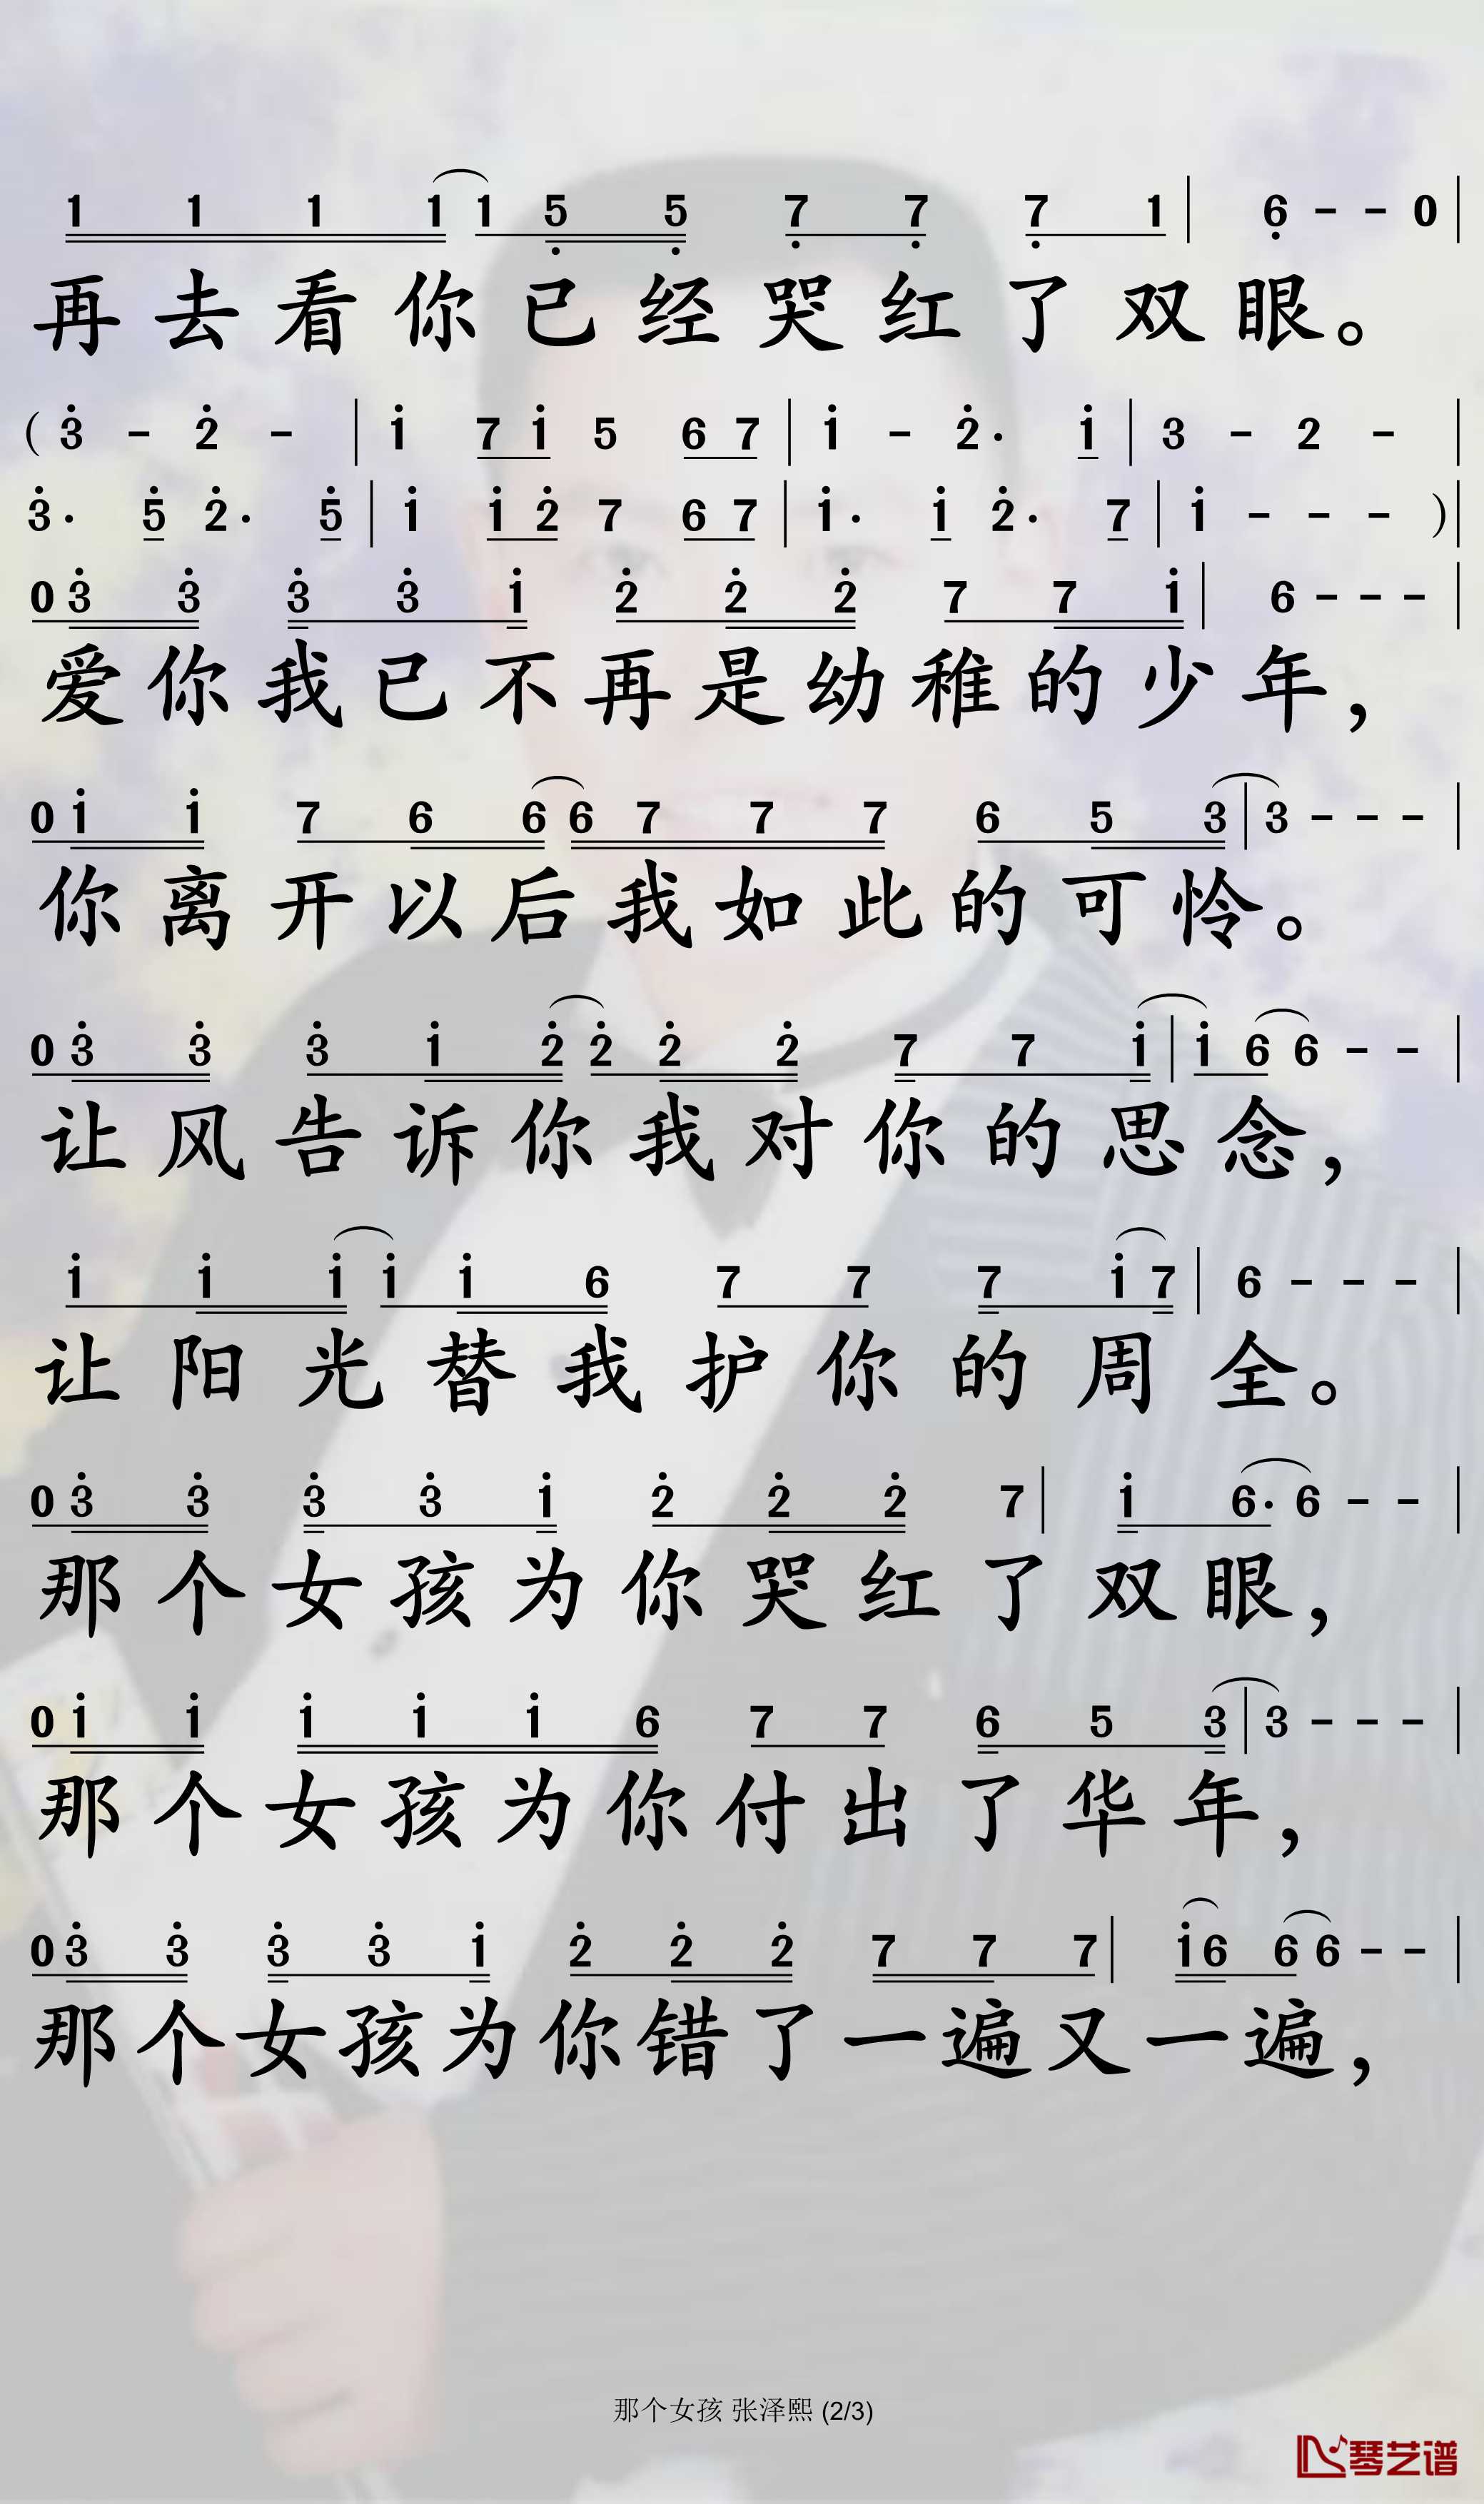 1 1 1 1 1 5 5 7 7 7 1 | 6 - - 0 |
再去看你已经哭红了双眼。
( 3 - 2 - | i 7 i 5 6 7 | i - 2· i | 3 - 2 - |
3· 5 2· 5 | i i 2 7 6 7 | i· i 2· 7 | i - - - ) |
0 3 3 3 3 i 2 2 2 7 7 i | 6 - - - |
爱你我已不再是幼稚的少年，
0 i i 7 6 6 6 7 7 7 6 5 3 | 3 - - - |
你离开以后我如此的可怜。
0 3 3 3 i 2 2 2 2 7 7 i | i 6 6 - - |
让风告诉你我对你的思念，
i i i i i 6 7 7 7 i 7 | 6 - - - |
让阳光替我护你的周全。
0 3 3 3 3 i 2 2 2 7 | i 6· 6 - - |
那个女孩为你哭红了双眼，
0 i i i i i 6 7 7 6 5 3 | 3 - - - |
那个女孩为你付出了华年，
0 3 3 3 3 i 2 2 2 7 7 7 | i 6 6 6 - - |
那个女孩为你错了一遍又一遍，
那个女孩 张泽熙 (2/3)
琴艺谱